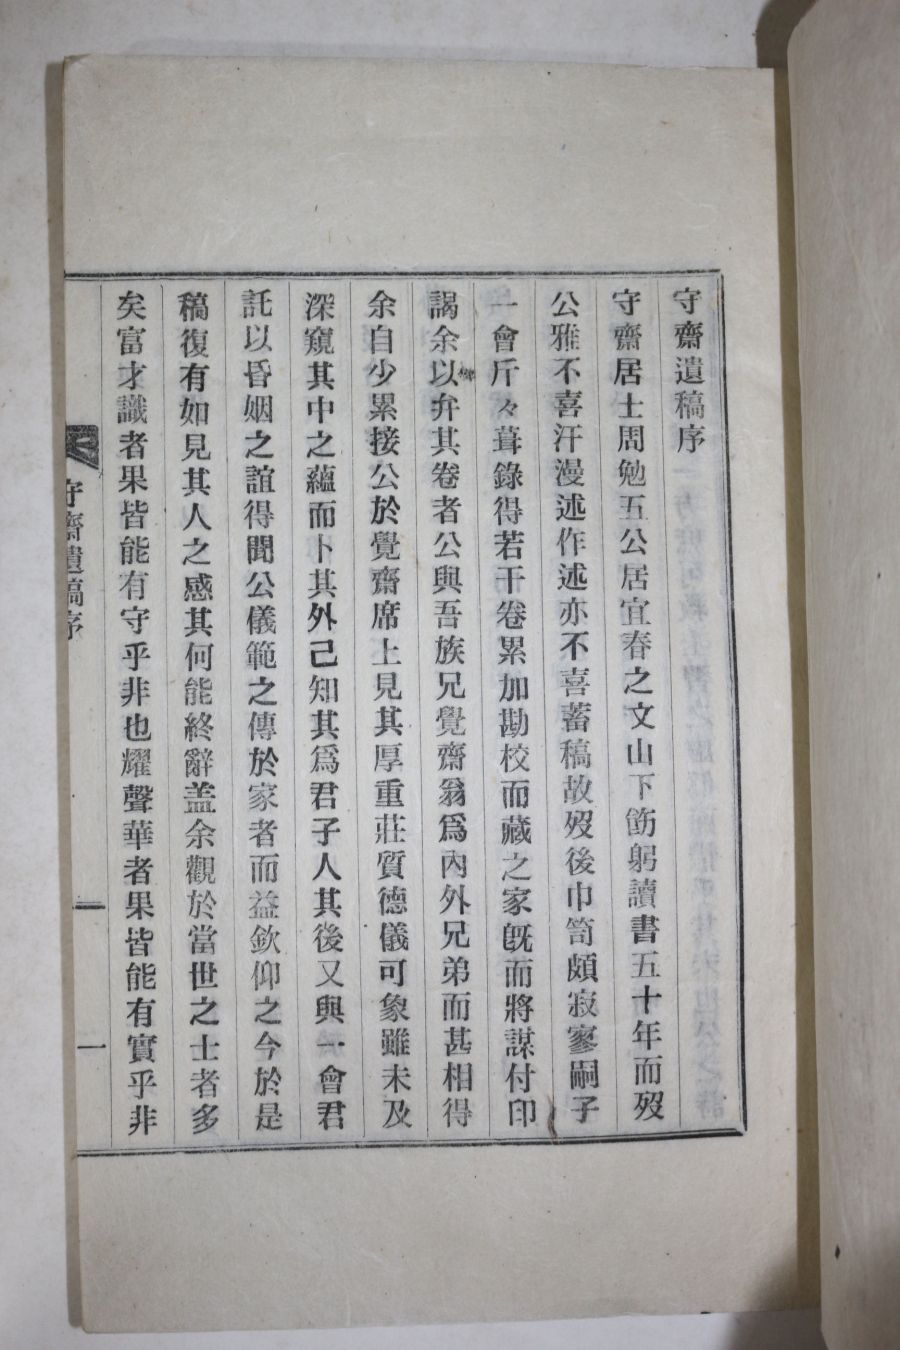 守齋遺稿序
守齋居士周勉五公居宜春之文山下飭躬讀書五十年而歿
公雅不喜汗漫述作述亦不喜蓄稿故歿後巾笥頗寂寥嗣子
一會斤々葺錄得若干卷累加勘校而藏之家旣而將謀付印
謁余以弁其卷者公與吾族兄覺齋翁爲內外兄弟而甚相得
余自少累接公於覺齋席上見其厚重莊質德儀可象雖未及
深窺其中之蘊而卜其外己知其爲君子人其後又與一會君
託以昏姻之誼得聞公儀範之傳於家者而益欽仰之今於是
稿復有如見其人之感其何能終辭盖余觀於當世之士者多
矣富才識者果皆能有守乎非也耀聲華者果皆能有實乎非
守齋遺稿序
一